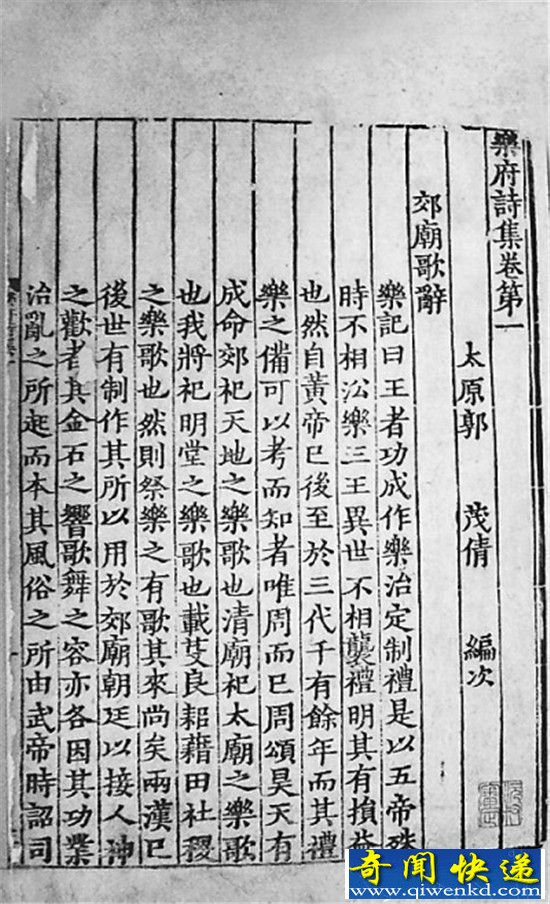 樂府詩集卷第一
太原郭 茂倩 編次
郊廟歌辭
樂記曰王者功成作樂治定制禮是以五帝殊
時不相沿樂三王異世不相襲禮明其有損益
也然自黃帝已後至於三代千有餘年而其禮
樂之備可以考而知者唯周而已周頌昊天有
成命郊祀天地之樂歌也清廟祀太廟之樂歌
也我將祀明堂之樂歌也載芟良耜藉田社稷
之樂歌也然則祭樂之有歌其來尚矣兩漢已
後世有制作其所以用於郊廟朝廷以接人神
之歡者其金石之響歌舞之容亦各因其功業
治亂之所起而本其風俗之所由武帝時詔司
奇闻快递
www.qiwenkd.com